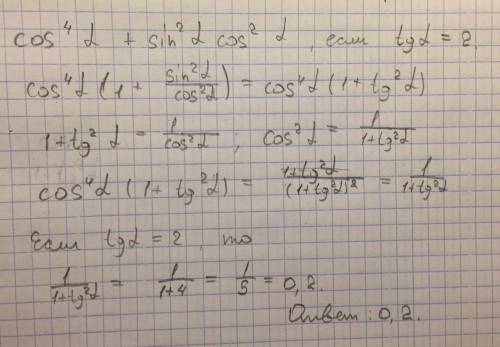 cos⁴α + sin²α cos²α, если tgα = 2.
cos⁴α (1 + sin²α/cos²α) = cos⁴α (1 + tg²α)
1 + tg²α = 1/cos²α ; cos²α = 1/(1+tg²α)
cos⁴α (1 + tg²α) = (1+tg²α)/(1+tg²α)² = 1/(1+tg²α)
Если tgα = 2, то
1/(1+tg²α) = 1/(1+4) = 1/5 = 0,2.
Ответ: 0,2.